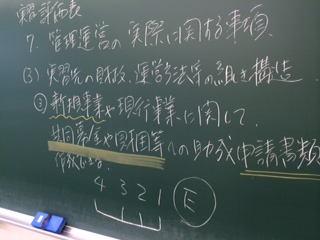 実習評価表
7. 管理運営の実際に関する事項
(3) 実習先の財政、運営方法等の組織構造
③ 新規事業や現行事業に関して、
共同募金や財団等への助成申請書類
作成ができる。
4 3 2 1 E